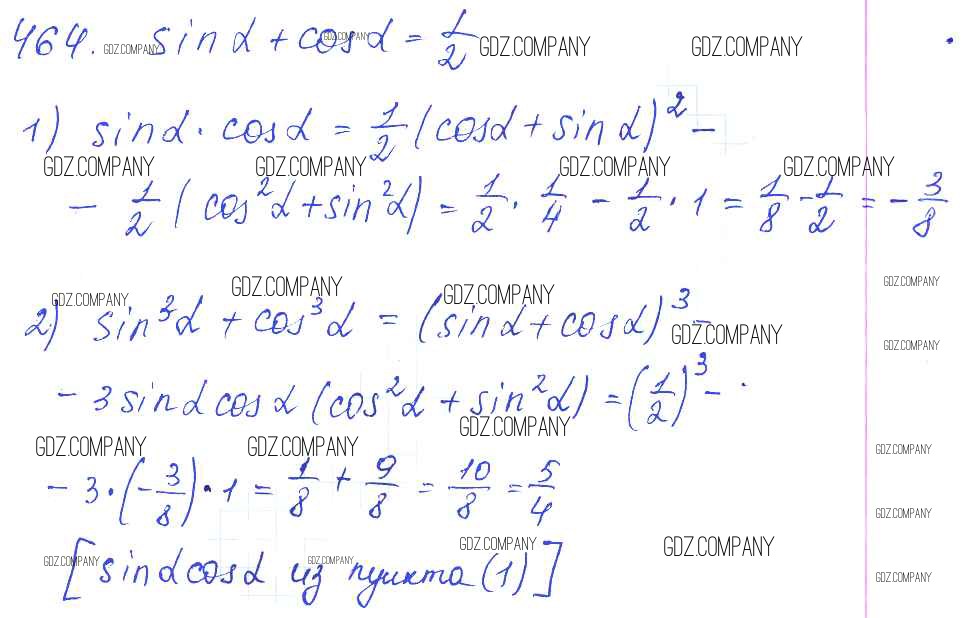 464. sin α + cos α = 1/2
1) sin α · cos α = 1/2 (cos α + sin α)² −
− 1/2 (cos²α + sin²α) = 1/2 · 1/4 − 1/2 · 1 = 1/8 − 1/2 = − 3/8
2) sin³α + cos³α = (sin α + cos α)³ −
− 3 sin α cos α (cos²α + sin²α) = (1/2)³ −
− 3 · (− 3/8) · 1 = 1/8 + 9/8 = 10/8 = 5/4
[sin α cos α из пункта (1)]
GDZ.COMPANY GDZ.COMPANY GDZ.COMPANY GDZ.COMPANY
GDZ.COMPANY GDZ.COMPANY GDZ.COMPANY GDZ.COMPANY
GDZ.COMPANY
GDZ.COMPANY GDZ.COMPANY GDZ.COMPANY
GDZ.COMPANY GDZ.COMPANY
GDZ.COMPANY
GDZ.COMPANY GDZ.COMPANY GDZ.COMPANY
GDZ.COMPANY
GDZ.COMPANY GDZ.COMPANY GDZ.COMPANY GDZ.COMPANY
GDZ.COMPANY